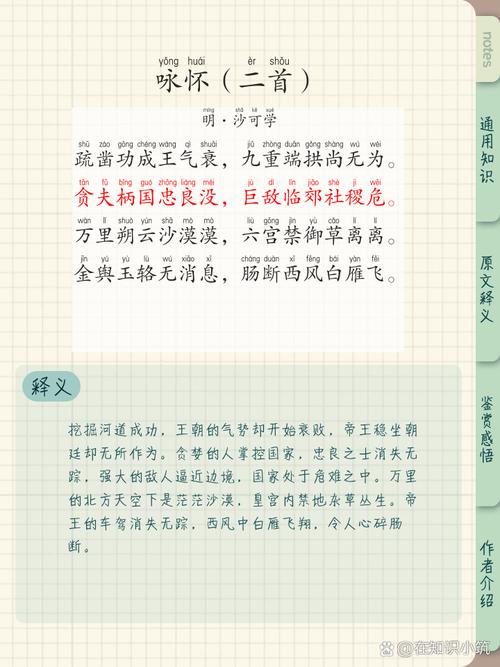 notes
yǒng huái èr shǒu
咏怀（二首）
míng shā kě xué
明·沙可学
shū záo gōng chéng wáng qì shuāi jiǔ chóng duān gǒng shàng wú wéi
疏凿功成王气衰，九重端拱尚无为。
tān fū bǐng guó zhōng liáng méi jù dí lín jiāo shè jì wēi
贪夫柄国忠良没，巨敌临郊社稷危。
wàn lǐ shuò yún shā mò mò liù gōng jìn yù cǎo lí lí
万里朔云沙漠漠，六宫禁御草离离。
jīn yú yù lù wú xiāo xī cháng duàn xī fēng bái yàn fēi
金舆玉辂无消息，肠断西风白雁飞。
释义
挖掘河道成功，王朝的气势却开始衰败，帝王稳坐朝
廷却无所作为。贪婪的人掌控国家，忠良之士消失无
踪，强大的敌人逼近边境，国家处于危难之中。万里
的北方天空下是茫茫沙漠，皇宫内禁地杂草丛生。帝
王的车驾消失无踪，西风中白雁飞翔，令人心碎肠
断。
通用知识
原文释义
鉴赏感悟
作者介绍
@在知识小筑